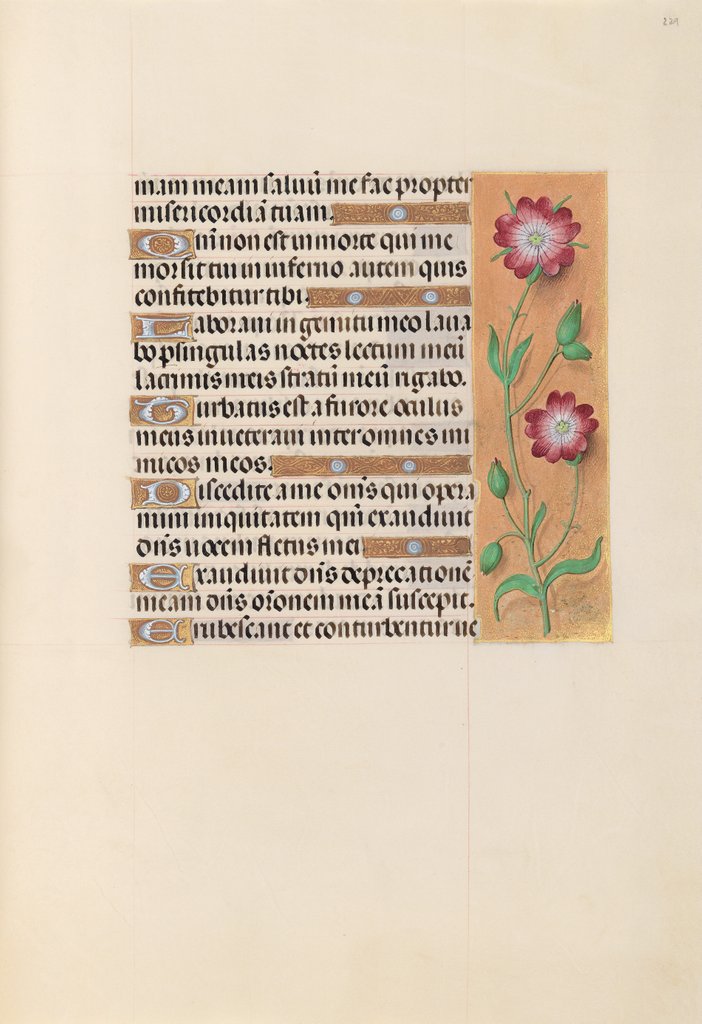 229
mam meam saluū me fac propter
misericordiā tuam.
Qm̄ non est in morte qui me
mor sit tui in inferno autem quis
confitebitur tibi.
Laboraui in gemitu meo laua
bo p singulas noctes lectum meū
lacrimis meis stratū meū rigabo.
Turbatus est a furore oculus
meus inueteraui inter omnes ini
micos meos.
Discedite a me om̄s qui opera
mini iniquitatem qm̄ exaudiuit
dn̄s uocem fletus mei.
Exaudiuit dn̄s deprecationē
meam dn̄s or̄onem meā suscepit.
Erubescant et conturbentur ue